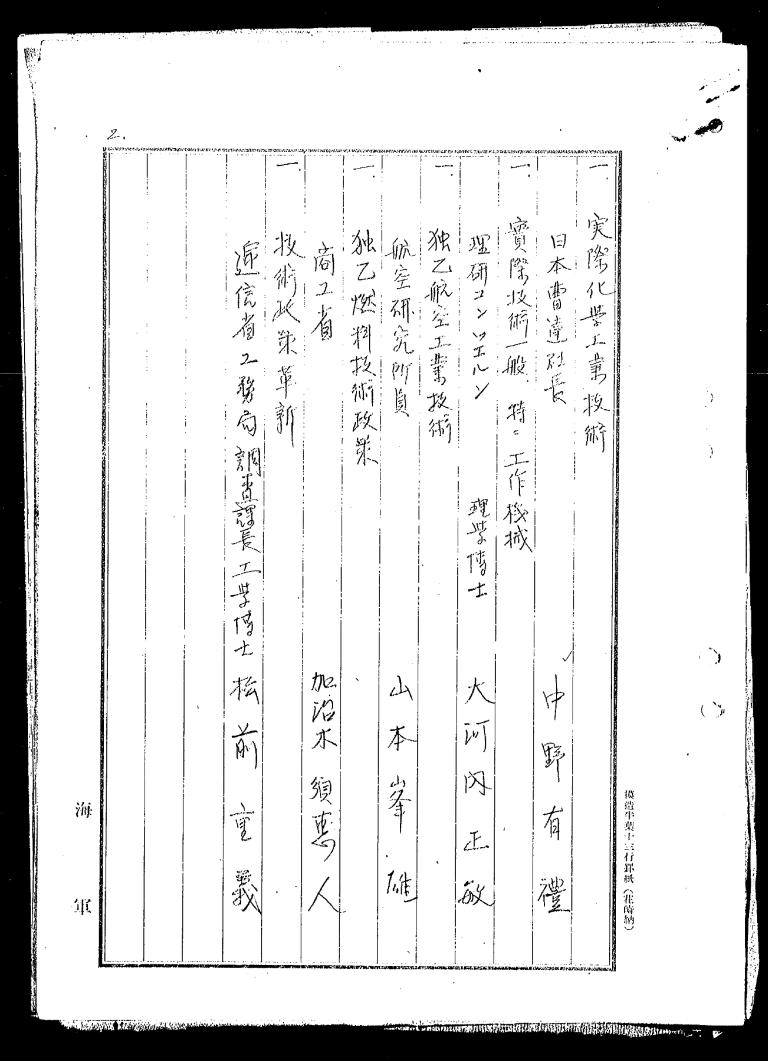 2.
一、実際化学工業技術
日本曹達社長 中野有禮
一、實際技術一般、特ニ工作機械
理研コンツエルン 理学博士 大河内正敏
一、独乙航空工業技術
航空研究所員 山本峯雄
一、独乙燃料技術政策
商工省 加治木須恵人
一、技術政策革新
逓信省工務局調査課長工学博士 松前重義
海軍